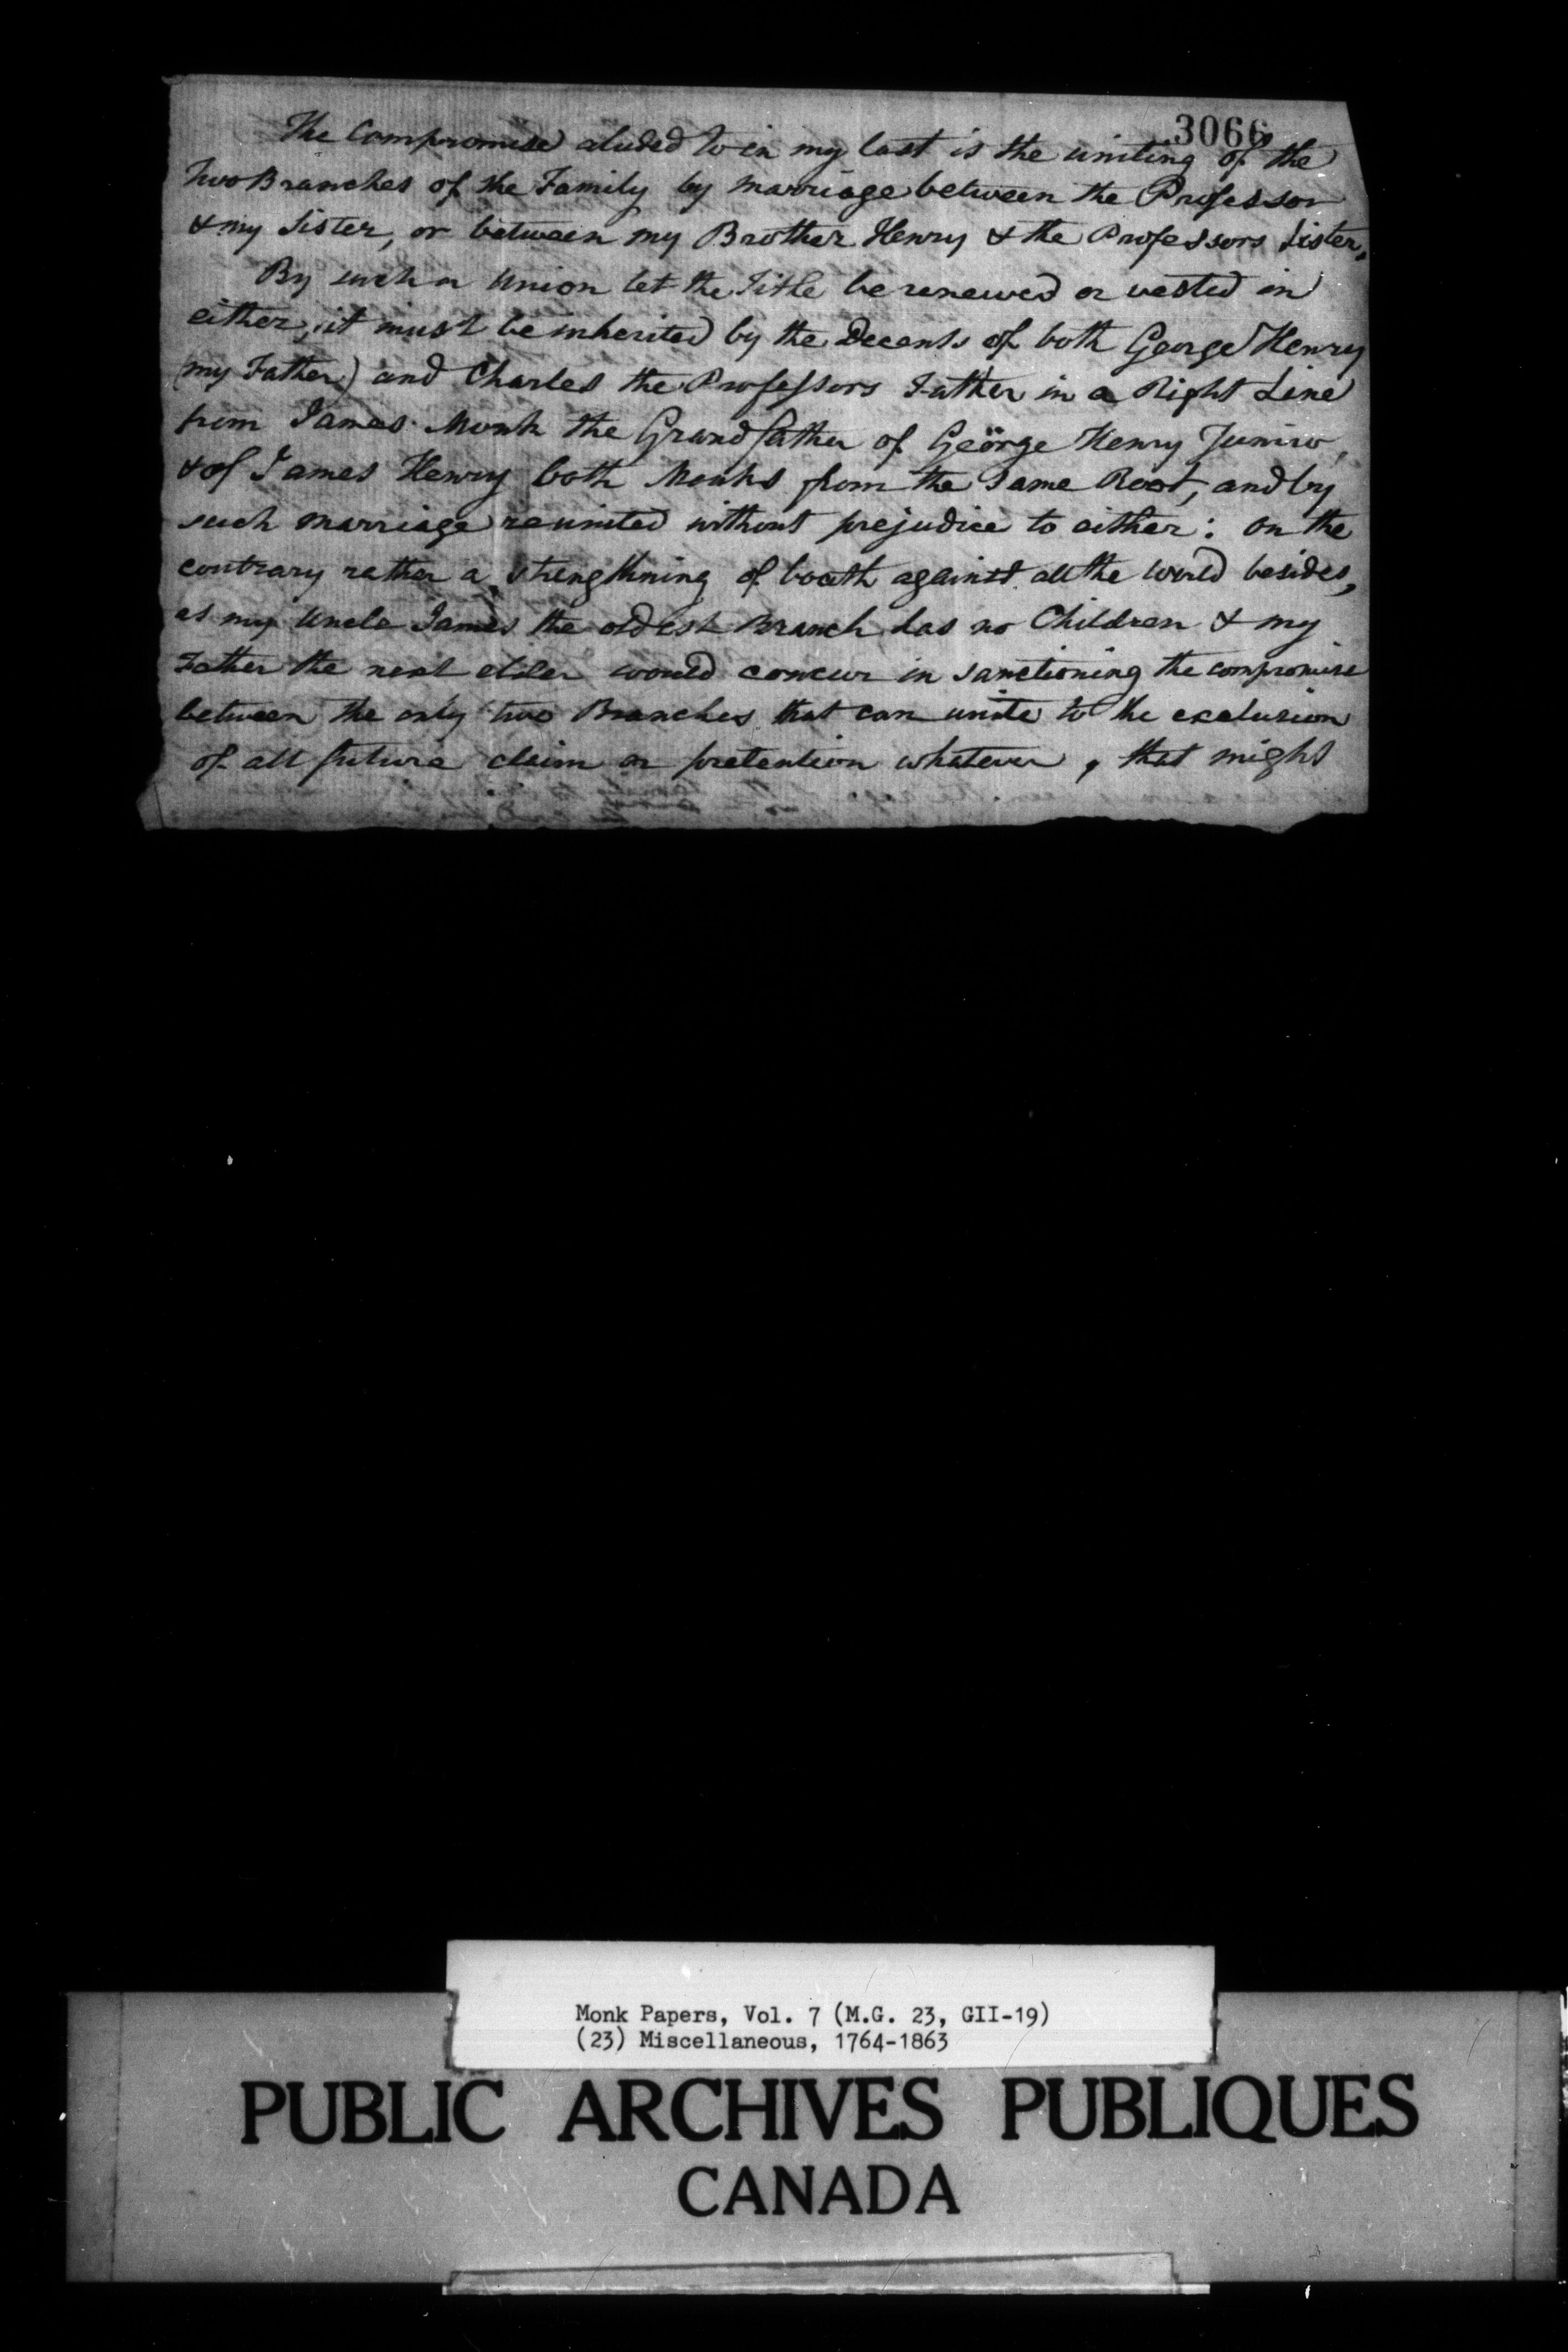 3066
The Compromise aluded to in my last is the uniting of the
Two Branches of the Family by marriage between the Professor
& my Sister, or between my Brother Henry & the Professors Sister.
By such a Union let the Title be renewed or vested in
either, it must be inherited by the Decents of both George Henry
(my Father) and Charles the Professors Father in a Right Line
from James Monk the Grandfather of George Henry Junior,
& of James Henry both Monks from the Same Root, and by
such marriage reunited without prejudice to either: on the
contrary rather a strengthning of boath against all the World besides,
as my Uncle James the oldest Branch has no Children & my
Father the next elder would concur in sanctioning the compromise
between the only two Branches that can unite to the exclusion
of all future claim or pretention whatever, that might
Monk Papers, Vol. 7 (M.G. 23, GII-19)
(23) Miscellaneous, 1764-1863
PUBLIC ARCHIVES PUBLIQUES
CANADA